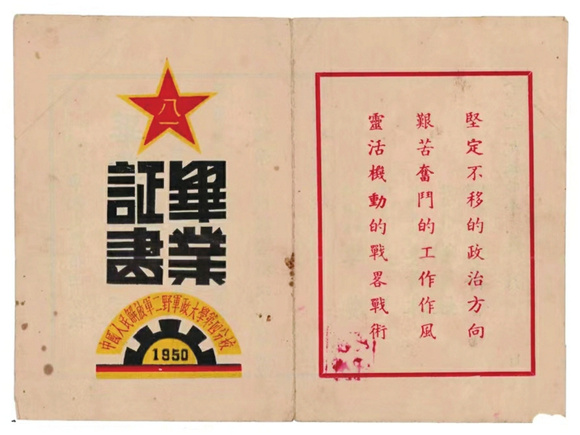 八一
畢業
証書
中國人民解放軍二野軍政大學第分校
1950
堅定不移的政治方向
艱苦奮鬥的工作作風
靈活機動的戰畧戰術